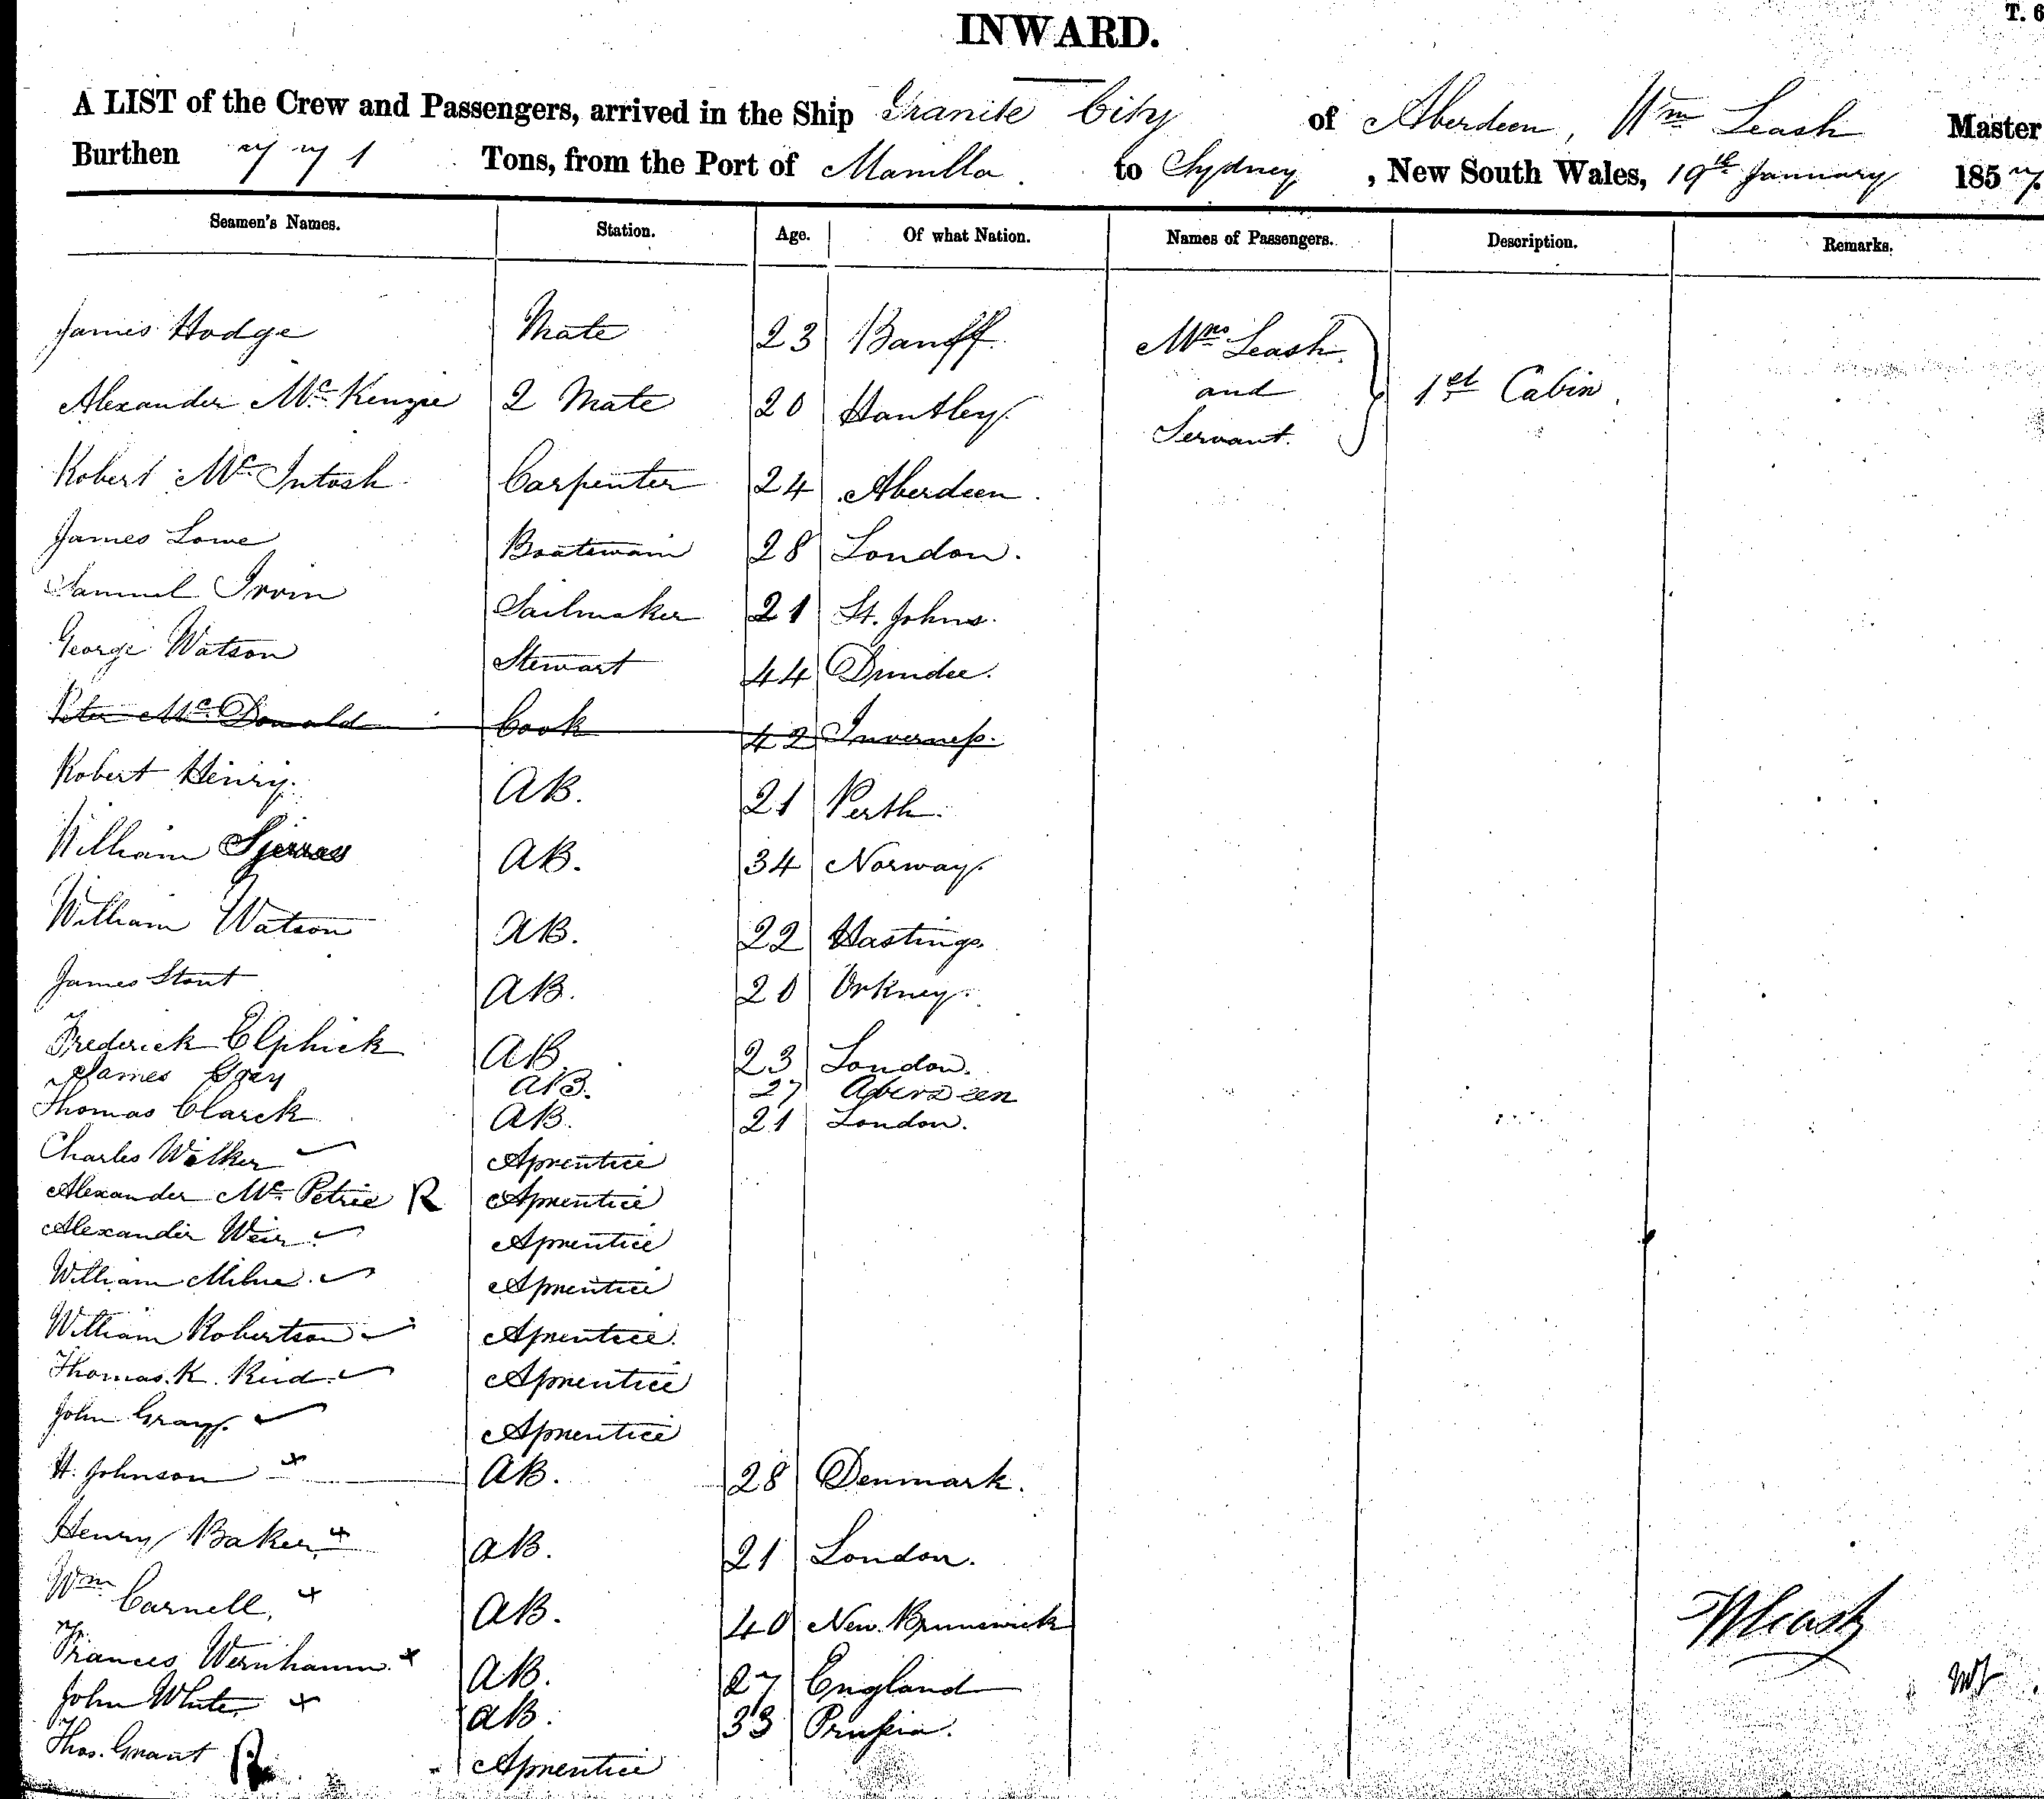 T. 6
INWARD.
A LIST of the Crew and Passengers, arrived in the Ship Granite City of Aberdeen, Wm Leash Master
Burthen 771 Tons, from the Port of Manilla to Sydney, New South Wales, 19th January 1857.
Seamen's Names. Station. Age. Of what Nation. Names of Passengers. Description. Remarks.
James Hodge Mate 23 Banff. Mrs Leash.
and
Servant. 1st Cabin.
Alexander McKenzie 2 Mate 20 Hantley.
Robert McIntosh Carpenter 24 Aberdeen.
James Lowe Boatswain 28 London.
Samuel Irvin Sailmaker 21 St. Johns.
George Watson Stewart 44 Dundee.
Peter McDonald Cook 42 Inverness.
Robert Henry. AB. 21 Perth.
William AB. 34 Norway.
William Watson AB. 22 Hastings
James Stout AB. 20 Orkney.
Frederick Elphick AB. 23 London.
James Gray AB. 27 Aberdeen
Thomas Clarck AB. 21 London.
Charles Walker Aprentice
Alexander Mc Petrie R Aprentice
Alexander Weir Aprentice
William Milne. Aprentice
William Robertson Aprentice.
Thomas. K. Reid. Aprentice
John Gray. Aprentice
H. Johnson x AB. 28 Denmark.
Henry Baker x AB. 21 London.
Wm Carnell, x AB. 40 New Brunswick
Frances Wernhamm. x AB. 27 England
John White, x AB. 33 Prussia.
Thos. Grant R Aprentice
WLeash